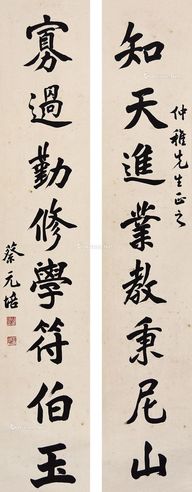 仲雅先生正之
知天進業教秉尼山
寡過勤修學符伯玉
蔡元培